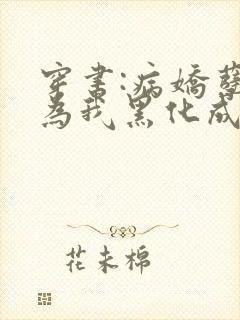 穿书:病娇
为我黑化成
花未棉